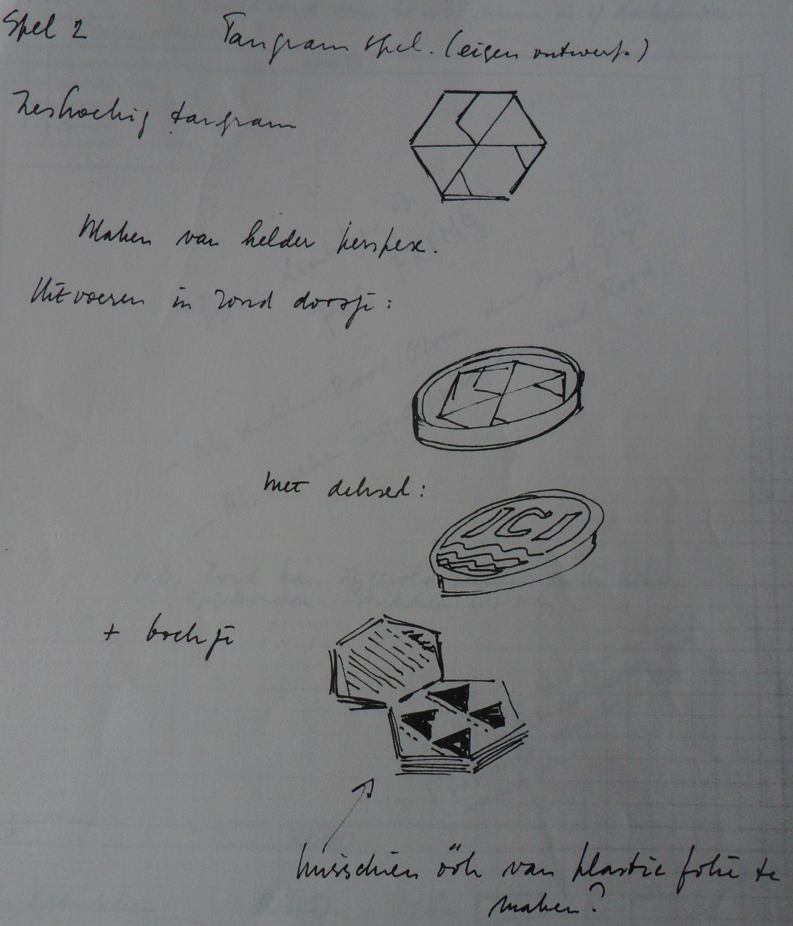 Spel 2
Tangram spel. (eigen ontwerp)
Zeshoekig tangram
Maken van helder perspex.
Uitvoeren in rond doosje:
met deksel:
ICI
+ boekje
misschien óók van plastic folie te
maken?